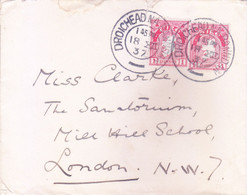 DROICHEAD NA
1 45 PM
18 JA
37
Miss Clarke,
The Sanatorium,
Mill Hill School,
London. N.W.7.